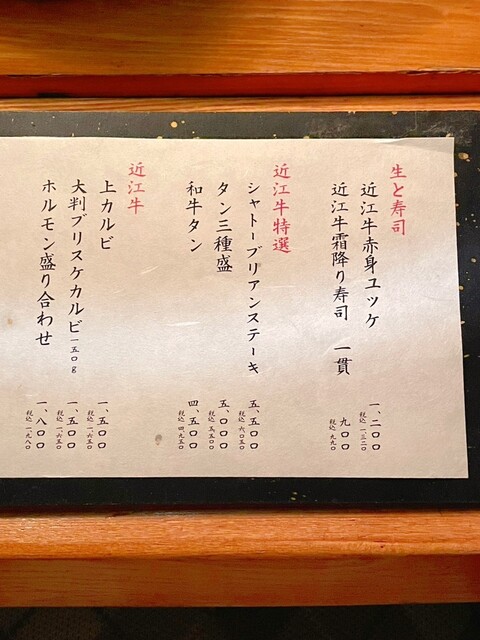 生と寿司
近江牛赤身ユッケ 一、二〇〇 税込 一、三二〇
近江牛霜降り寿司 一貫 九〇〇 税込 九九〇
近江牛特選
シャトーブリアンステーキ 五、五〇〇 税込 六〇五〇
タン三種盛 五、〇〇〇 税込 五五〇〇
和牛タン 四、五〇〇 税込 四、九五〇
近江牛
上カルビ 一、五〇〇 税込 一、六五〇
大判ブリスケカルビ 一五〇g 一、五〇〇 税込 一六五〇
ホルモン盛り合わせ 一、八〇〇 税込 一、九八〇